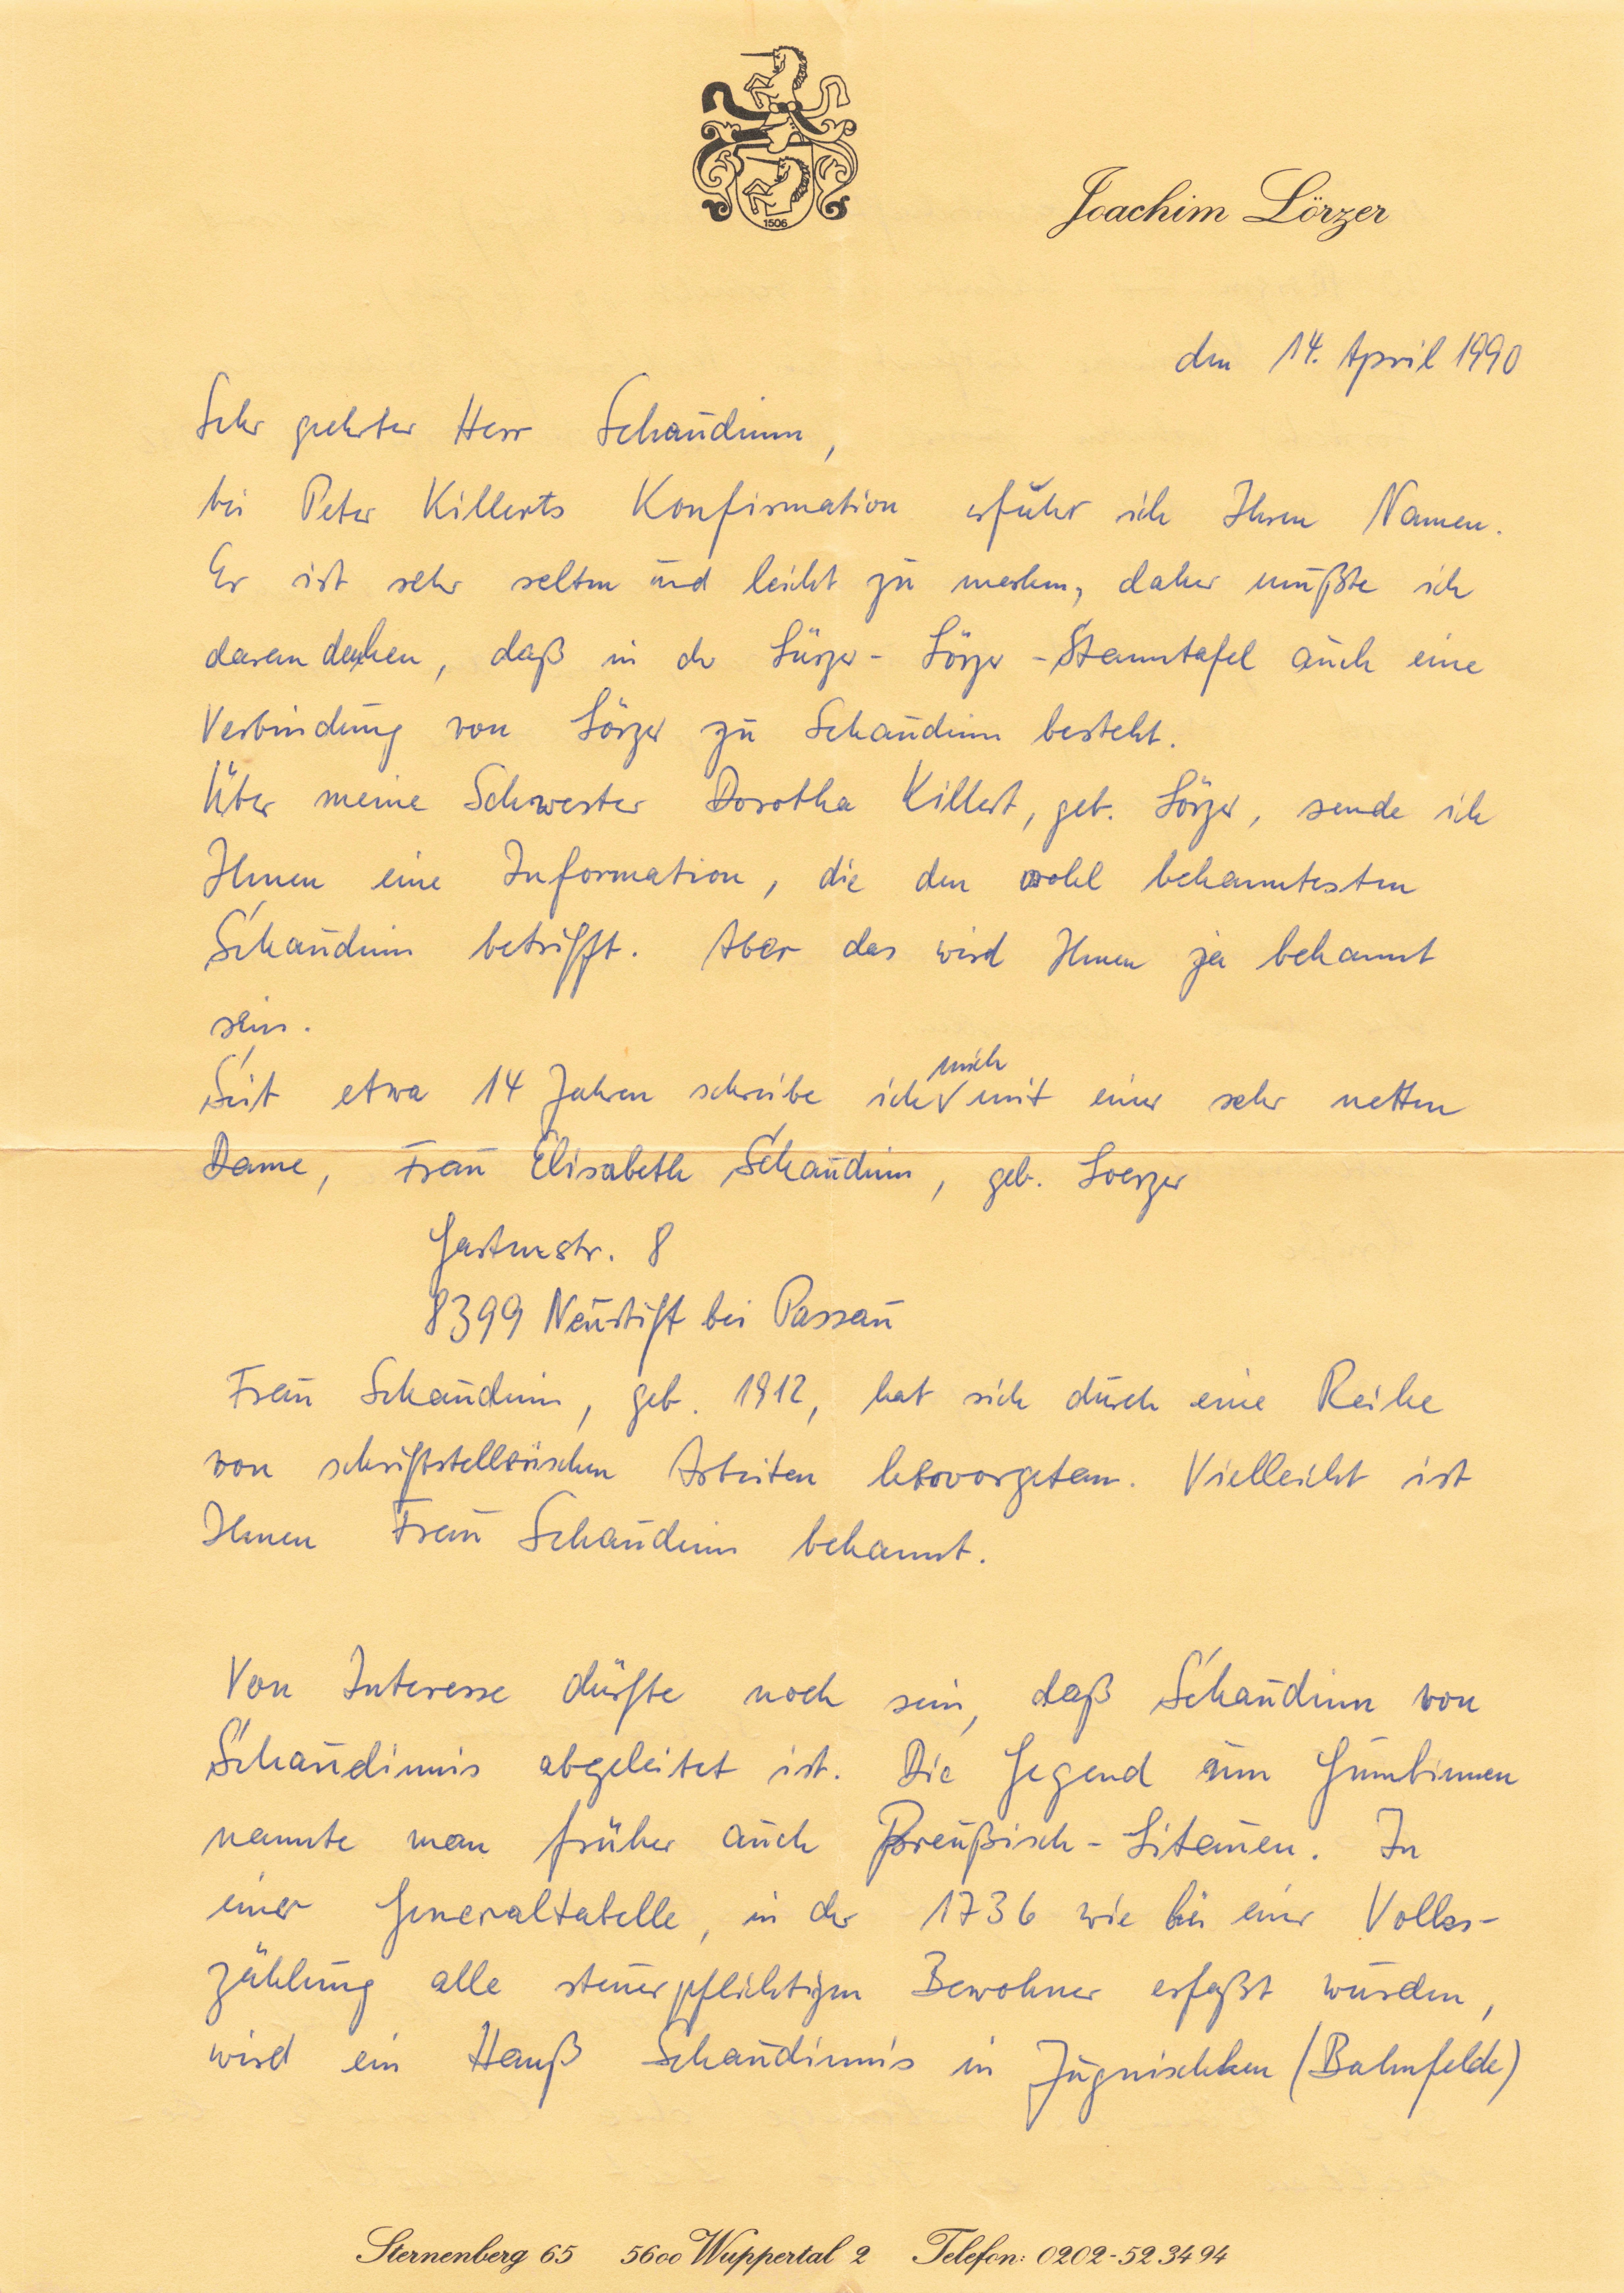 1506
Joachim Lörzer
den 14. April 1990
Sehr geehrter Herr Schaudinn,
bei Peter Killerts Konfirmation erfuhr ich Ihren Namen.
Er ist sehr selten und leicht zu merken, daher mußte ich
daran denken, daß in der Lürzer- Lörzer-Stammtafel auch eine
Verbindung von Lörzer zu Schaudinn besteht.
Über meine Schwester Dorothea Killert, geb. Lörzer, sende ich
Ihnen eine Information, die den wohl bekanntesten
Schaudinn betrifft. Aber das wird Ihnen ja bekannt
sein.
Seit etwa 14 Jahren schreibe ich mich mit einer sehr netten
Dame, Frau Elisabeth Schaudinn, geb. Loerzer
Gartenstr. 8
8399 Neustift bei Passau
Frau Schaudinn, geb. 1912, hat sich durch eine Reihe
von schriftstellerischen Arbeiten hervorgetan. Vielleicht ist
Ihnen Frau Schaudinn bekannt.
Von Interesse dürfte noch sein, daß Schaudinn von
Schaudinnis abgeleitet ist. Die Gegend um Gumbinnen
nannte man früher auch Preußisch-Litauen. In
einer Generaltabelle, in der 1736 wie bei einer Volks-
zählung alle steuerpflichtigen Bewohner erfaßt wurden,
wird ein Hanß Schaudinnis in Jugnischken (Bahnfelde)
Sternenberg 65 5600 Wuppertal 2 Telefon: 0202-52 34 94